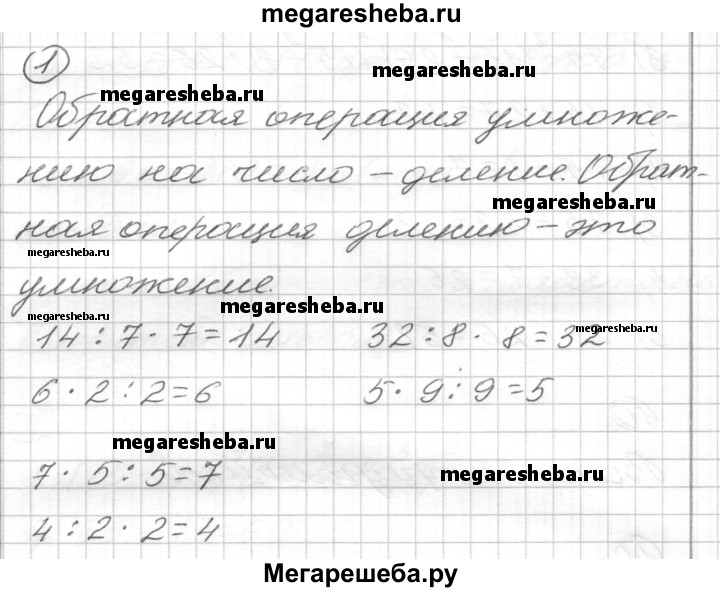 megaresheba.ru
1
megaresheba.ru
megaresheba.ru
Обратная операция умноже-
нию на число – деление. Обрат-
megaresheba.ru
ная операция делению – это
megaresheba.ru
умножение.
megaresheba.ru
megaresheba.ru
megaresheba.ru
14 : 7 · 7 = 14 32 : 8 · 8 = 32
6 · 2 : 2 = 6 5 · 9 : 9 = 5
megaresheba.ru
megaresheba.ru
7 · 5 : 5 = 7
4 : 2 · 2 = 4
Мегарешеба.ру